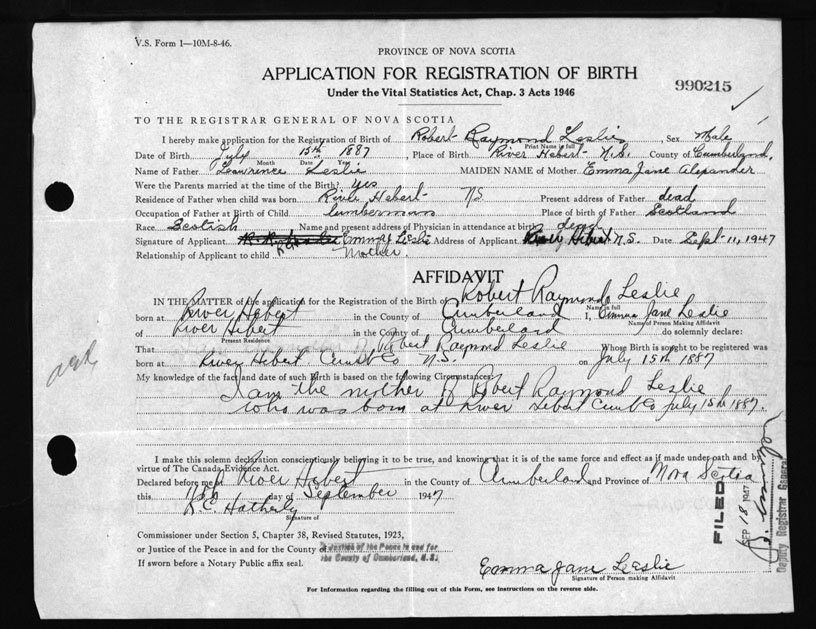 V.S. Form 1—10M-8-46.
PROVINCE OF NOVA SCOTIA
APPLICATION FOR REGISTRATION OF BIRTH
Under the Vital Statistics Act, Chap. 3 Acts 1946
990215
TO THE REGISTRAR GENERAL OF NOVA SCOTIA
I hereby make application for the Registration of Birth of Robert Raymond Leslie Sex Male
Print Name in full
Date of Birth July 15th 1887, Place of Birth River Hebert N.S. County of Cumberland.
Month Date Year
Name of Father Lawrence Leslie MAIDEN NAME of Mother Emma Jane Alexander
Were the Parents married at the time of the Birth? yes
Residence of Father when child was born River Hebert N.S. Present address of Father dead
Occupation of Father at Birth of Child lumberman Place of birth of Father Scotland
Race Scotish Name and present address of Physician in attendance at birth dead
Signature of Applicant Emma J Leslie Address of Applicant River Hebert N.S. Date Sept. 11, 1947
Relationship of Applicant to child Mother.
AFFIDAVIT
IN THE MATTER of the application for the Registration of the Birth of Robert Raymond Leslie
Name in full
born at River Hebert in the County of Cumberland I, Emma Jane Leslie
Name of Person Making Affidavit
of River Hebert in the County of Cumberland do solemnly declare:
Present Residence
That Robert Raymond Leslie Whose Birth is sought to be registered was
born at River Hebert Cumb Co N.S. on July 15th 1887
My knowledge of the fact and date of such Birth is based on the following Circumstances:
I am the mother of Robert Raymond Leslie
who was born at River Hebert Cumb Co July 15th 1887.
I make this solemn declaration conscientiously believing it to be true, and knowing that it is of the same force and effect as if made under oath and by
virtue of The Canada Evidence Act.
Declared before me at River Hebert in the County of Cumberland and Province of Nova Scotia
this 11th day of September 1947
R.C. Hatherly
Signature of
Commissioner under Section 5, Chapter 38, Revised Statutes, 1923,
or Justice of the Peace in and for the County of A Justice of the Peace in and for
the County of Cumberland, N.S.
If sworn before a Notary Public affix seal.
Emma Jane Leslie
Signature of Person making Affidavit
For Information regarding the filling out of this Form, see instructions on the reverse side.
FILED
SEP 18 1947
Deputy Registrar General